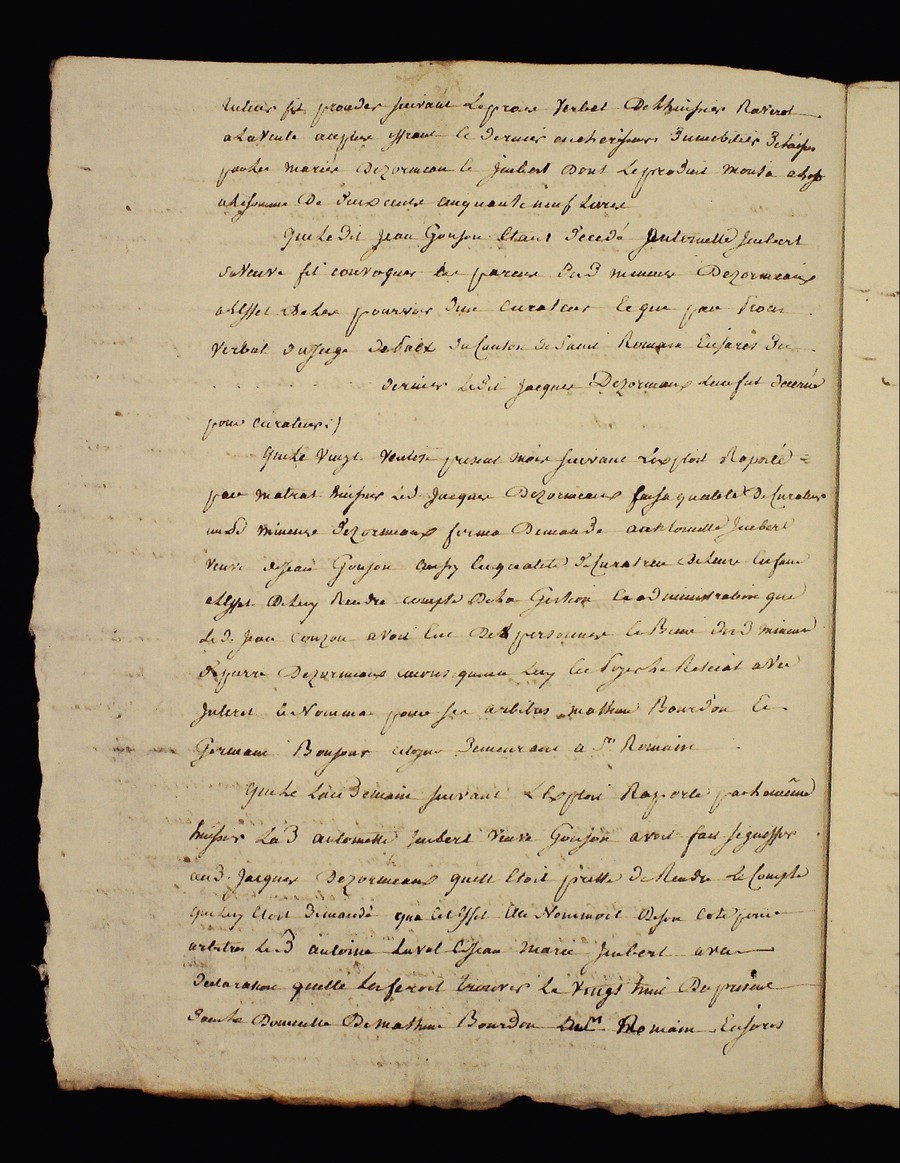 tuteur fit proceder suivant le proces verbal De L'huissier Raverot
a La vente au plus offrant & Dernier encherisseur Du mobilier Delaissé
par Les mariés Dezormeaux & Jmbert Dont Le produit monta a
a La somme De deux cents cinquante neuf Livres
Que Le Dit Jean Goujon Etant Decedé Antoinette Jmbert
sa veuve fit convoquer les parens Desd mineurs Dezormeaux
a L'effet De Les pourvoir D'un Curateur Et que par Procès
verbal du Juge De Paix Du Canton de Saint Romain En Jarés Du
. . . . . . dernier Ledit Jacques Dezormeaux Leur fut decerné
pour curateur ;)
Que Le vingt ventose present mois suivant L'exploit Raporté
par matrat huissier Led Jacques Dezormeaux en sa qualité De Curateur
auxd mineurs Dezormeaux forma Demande a antoinette Jmbert
veuve de Jean Goujon aussy En qualité De Curatrice De Leurs Enfans
a L'effet De Luy Rendre compte De La Gestion & administration que
Led. Jean Goujon avoit Eue Des personnes & Biens desd mineurs
De pierre Dezormeaux moins que luy En Payer Le Reliquat avec
Jnteret & Nomma pour ses arbitres mathieu Bourdon Et
Germain Bonjour citoyens Demeurant a St Romain
Que Le Lendemain suivant L'Exploit Raporté par Le même
huissier Lad antoinette Jmbert veuve Goujon avoit fait signiffier
aud. Jacques Dezormeaux quell Etoit prette de Rendre Le Compte
qui Luy Etoit Demandé qua Cet Effet Elle Nommoit De son Coté pour
arbitres Led antoine Laval & Jean Marie Jmbert avec
Declaration quelle Les feroit trouver Le Vingt huit Du présent
dans Le Domicille De mathieu Bourdon a St Romain En Jarés